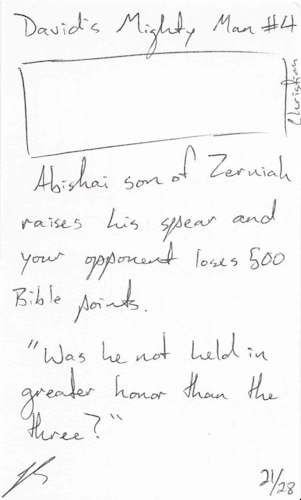 David's Mighty Man #4
Christian
Abishai son of Zeruiah
raises his spear and
your opponent loses 500
Bible points.
"Was he not held in
greater honor than the
three?"
21/28